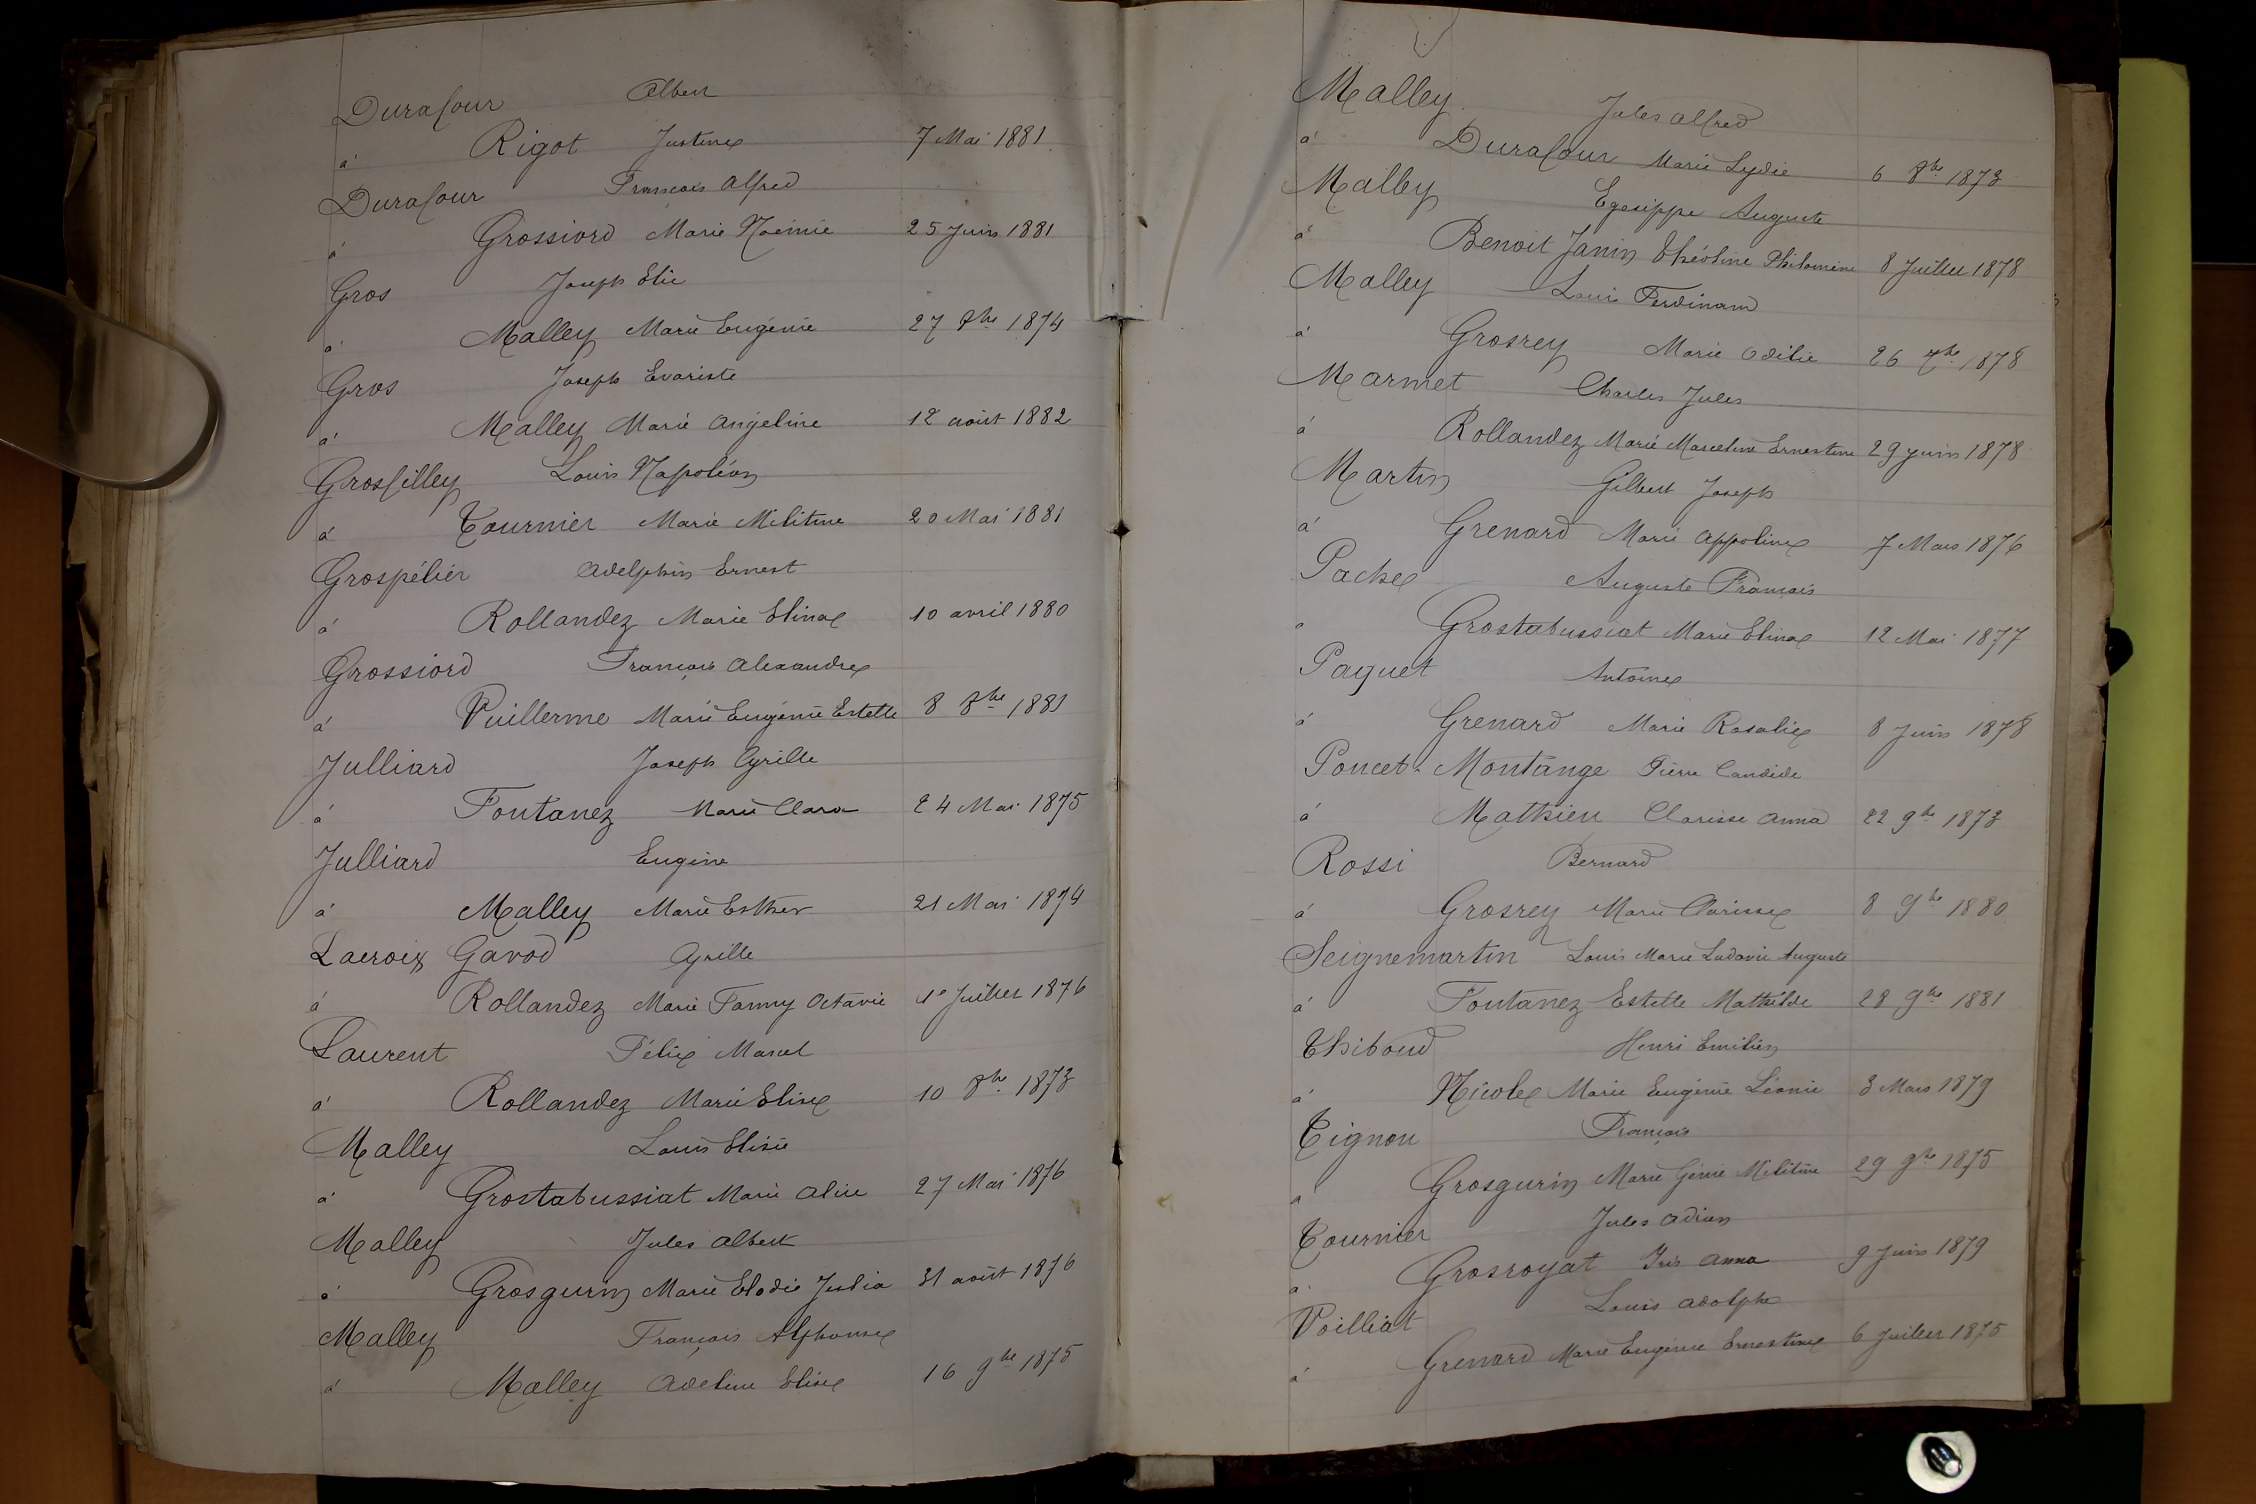 Durafour Albert
à Rigot Justine 7 Mai 1881
Durafour François Alfred
à Grossiord Marie Noémie 25 Juin 1881
Gros Joseph Elie
à Malley Marie Eugénie 27 8bre 1874
Gros Joseph Evariste
à Malley Marie Angeline 12 août 1882
Grosfilley Louis Napoléon
à Tournier Marie Melitine 20 Mai 1881
Grospélier Adelphin Ernest
à Rollandez Marie Elina 10 avril 1880
Grossiord François Alexandre
à Vuillerme Marie Eugénie Estelle 8 8bre 1881
Julliard Joseph Cyrille
à Fontanez Marie Clara 24 Mai 1875
Julliard Eugène
à Malley Marie Esther 21 Mai 1874
Lacroix Gavod Cyrille
à Rollandez Marie Fanny Octavie 1er Juillet 1876
Laurent Félix Marcel
à Rollandez Marie Elise 10 8bre 1873
Malley Louis Elisée
à Grostabussiat Marie Alice 27 Mai 1876
Malley Jules Albert
à Grosgurin Marie Elodie Julia 31 août 1876
Malley François Alphonse
à Malley Adeline Elise 16 9bre 1875
Malley Jules Alfred
à Durafour Marie Lydie 6 8bre 1873
Malley Egesippe Auguste
à Benoit Janin Théotine Philomène 8 Juillet 1878
Malley Louis Ferdinand
à Grosrey Marie Odilie 26 7bre 1878
Marmet Charles Jules
à Rollandez Marie Marceline Ernestine 29 juin 1878
Martin Gilbert Joseph
à Grenard Marie Appoline 7 Mars 1876
Pache Auguste François
à Grostabussiat Marie Elina 12 Mai 1877
Paquet Antoine
à Grenard Marie Rosalie 8 Juin 1878
Poncet-Montange Pierre Candide
à Mathieu Clarisse Anna 22 9bre 1873
Rossi Bernard
à Grosrey Marie Clarisse 8 9bre 1880
Seignemartin Louis Marie Ludovic Auguste
à Fontanez Estelle Mathilde 28 9bre 1881
Thiboud Henri Emilien
à Nicole Marie Eugénie Léonie 3 Mars 1879
Tignou François
à Grosgurin Marie Génie Melitine 29 9bre 1875
Tournier Jules Adrien
à Grosroyat Iris Anna 9 Juin 1879
Voilliat Louis Adolphe
à Grenard Marie Eugénie Ernestine 6 Juillet 1875